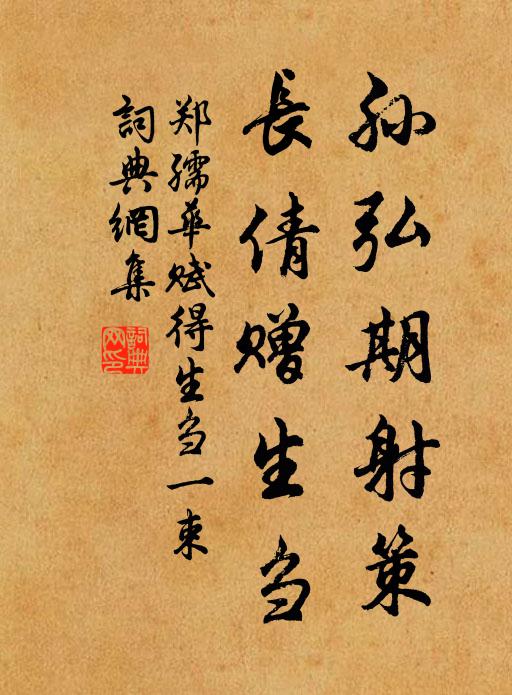 孙弘期射策
長倩赠生刍
郑孺華赋得生刍一束
詞典網集
詞典網印